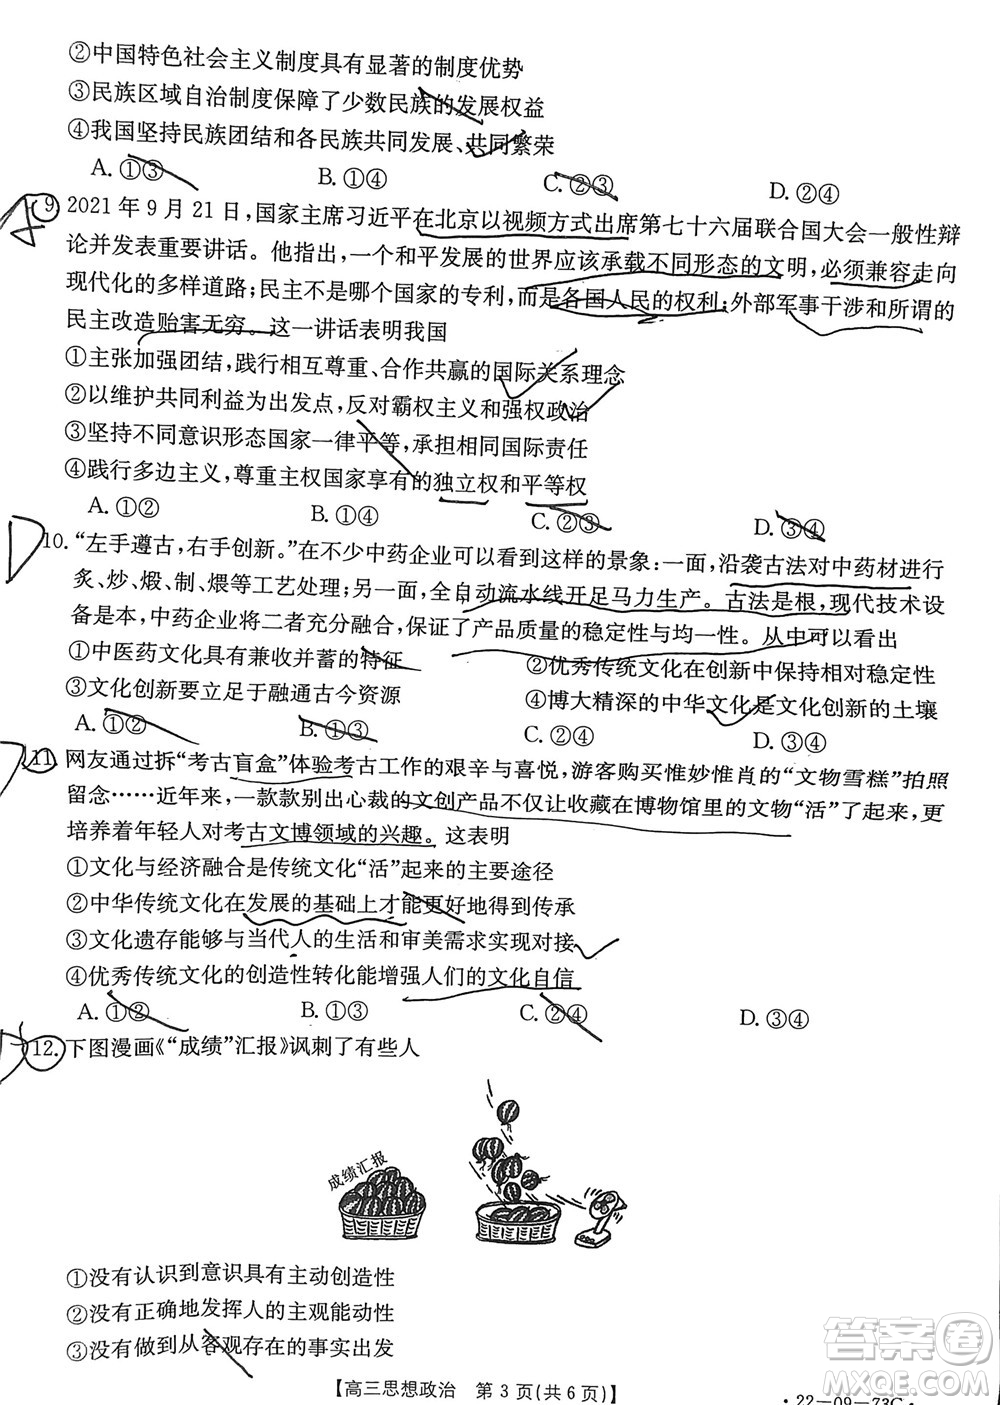 ②中国特色社会主义制度具有显著的制度优势
③民族区域自治制度保障了少数民族的发展权益
④我国坚持民族团结和各民族共同发展、共同繁荣
A. ①③ B. ①④ C. ②③ D. ②④
A 9. 2021年9月21日,国家主席习近平在北京以视频方式出席第七十六届联合国大会一般性辩
论并发表重要讲话。他指出,一个和平发展的世界应该承载不同形态的文明,必须兼容走向
现代化的多样道路;民主不是哪个国家的专利,而是各国人民的权利;外部军事干涉和所谓的
民主改造贻害无穷。这一讲话表明我国
①主张加强团结,践行相互尊重、合作共赢的国际关系理念
②以维护共同利益为出发点,反对霸权主义和强权政治
③坚持不同意识形态国家一律平等,承担相同国际责任
④践行多边主义,尊重主权国家享有的独立权和平等权
A. ①② B. ①④ C. ②③ D. ③④
D 10. “左手遵古,右手创新。”在不少中药企业可以看到这样的景象:一面,沿袭古法对中药材进行
炙、炒、煅、制、煨等工艺处理;另一面,全自动流水线开足马力生产。古法是根,现代技术设
备是本,中药企业将二者充分融合,保证了产品质量的稳定性与均一性。从中可以看出
①中医药文化具有兼收并蓄的特征 ②优秀传统文化在创新中保持相对稳定性
③文化创新要立足于融通古今资源 ④博大精深的中华文化是文化创新的土壤
A. ①② B. ①③ C. ②④ D. ③④
11. 网友通过拆“考古盲盒”体验考古工作的艰辛与喜悦,游客购买惟妙惟肖的“文物雪糕”拍照
留念……近年来,一款款别出心裁的文创产品不仅让收藏在博物馆里的文物“活”了起来,更
培养着年轻人对考古文博领域的兴趣。这表明
①文化与经济融合是传统文化“活”起来的主要途径
②中华传统文化在发展的基础上才能更好地得到传承
③文化遗存能够与当代人的生活和审美需求实现对接
④优秀传统文化的创造性转化能增强人们的文化自信
A. ①② B. ①③ C. ②④ D. ③④
12. 下图漫画《“成绩”汇报》讽刺了有些人
成绩汇报
①没有认识到意识具有主动创造性
②没有正确地发挥人的主观能动性
③没有做到从客观存在的事实出发
答案圈
【高三思想政治 第3页(共6页)】
·22—09—73C·